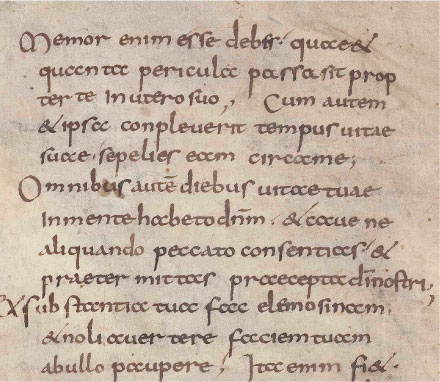 Memor enim esse debes. quae &
quanta pericula passa sit prop
ter te in utero suo, Cum autem
& ipsa conpleverit tempus vitae
suae. sepelies eam circa me;
Omnibus autē diebus vitae tuae
in mente habeto dn̄m. & cave ne
aliquando peccato consentias. &
praetermittas praecepta dn̄i nostri,
Ex substantia tua fac elemosinam,
& noli avertere faciem tuam
ab ullo paupere, Ita enim fi&.